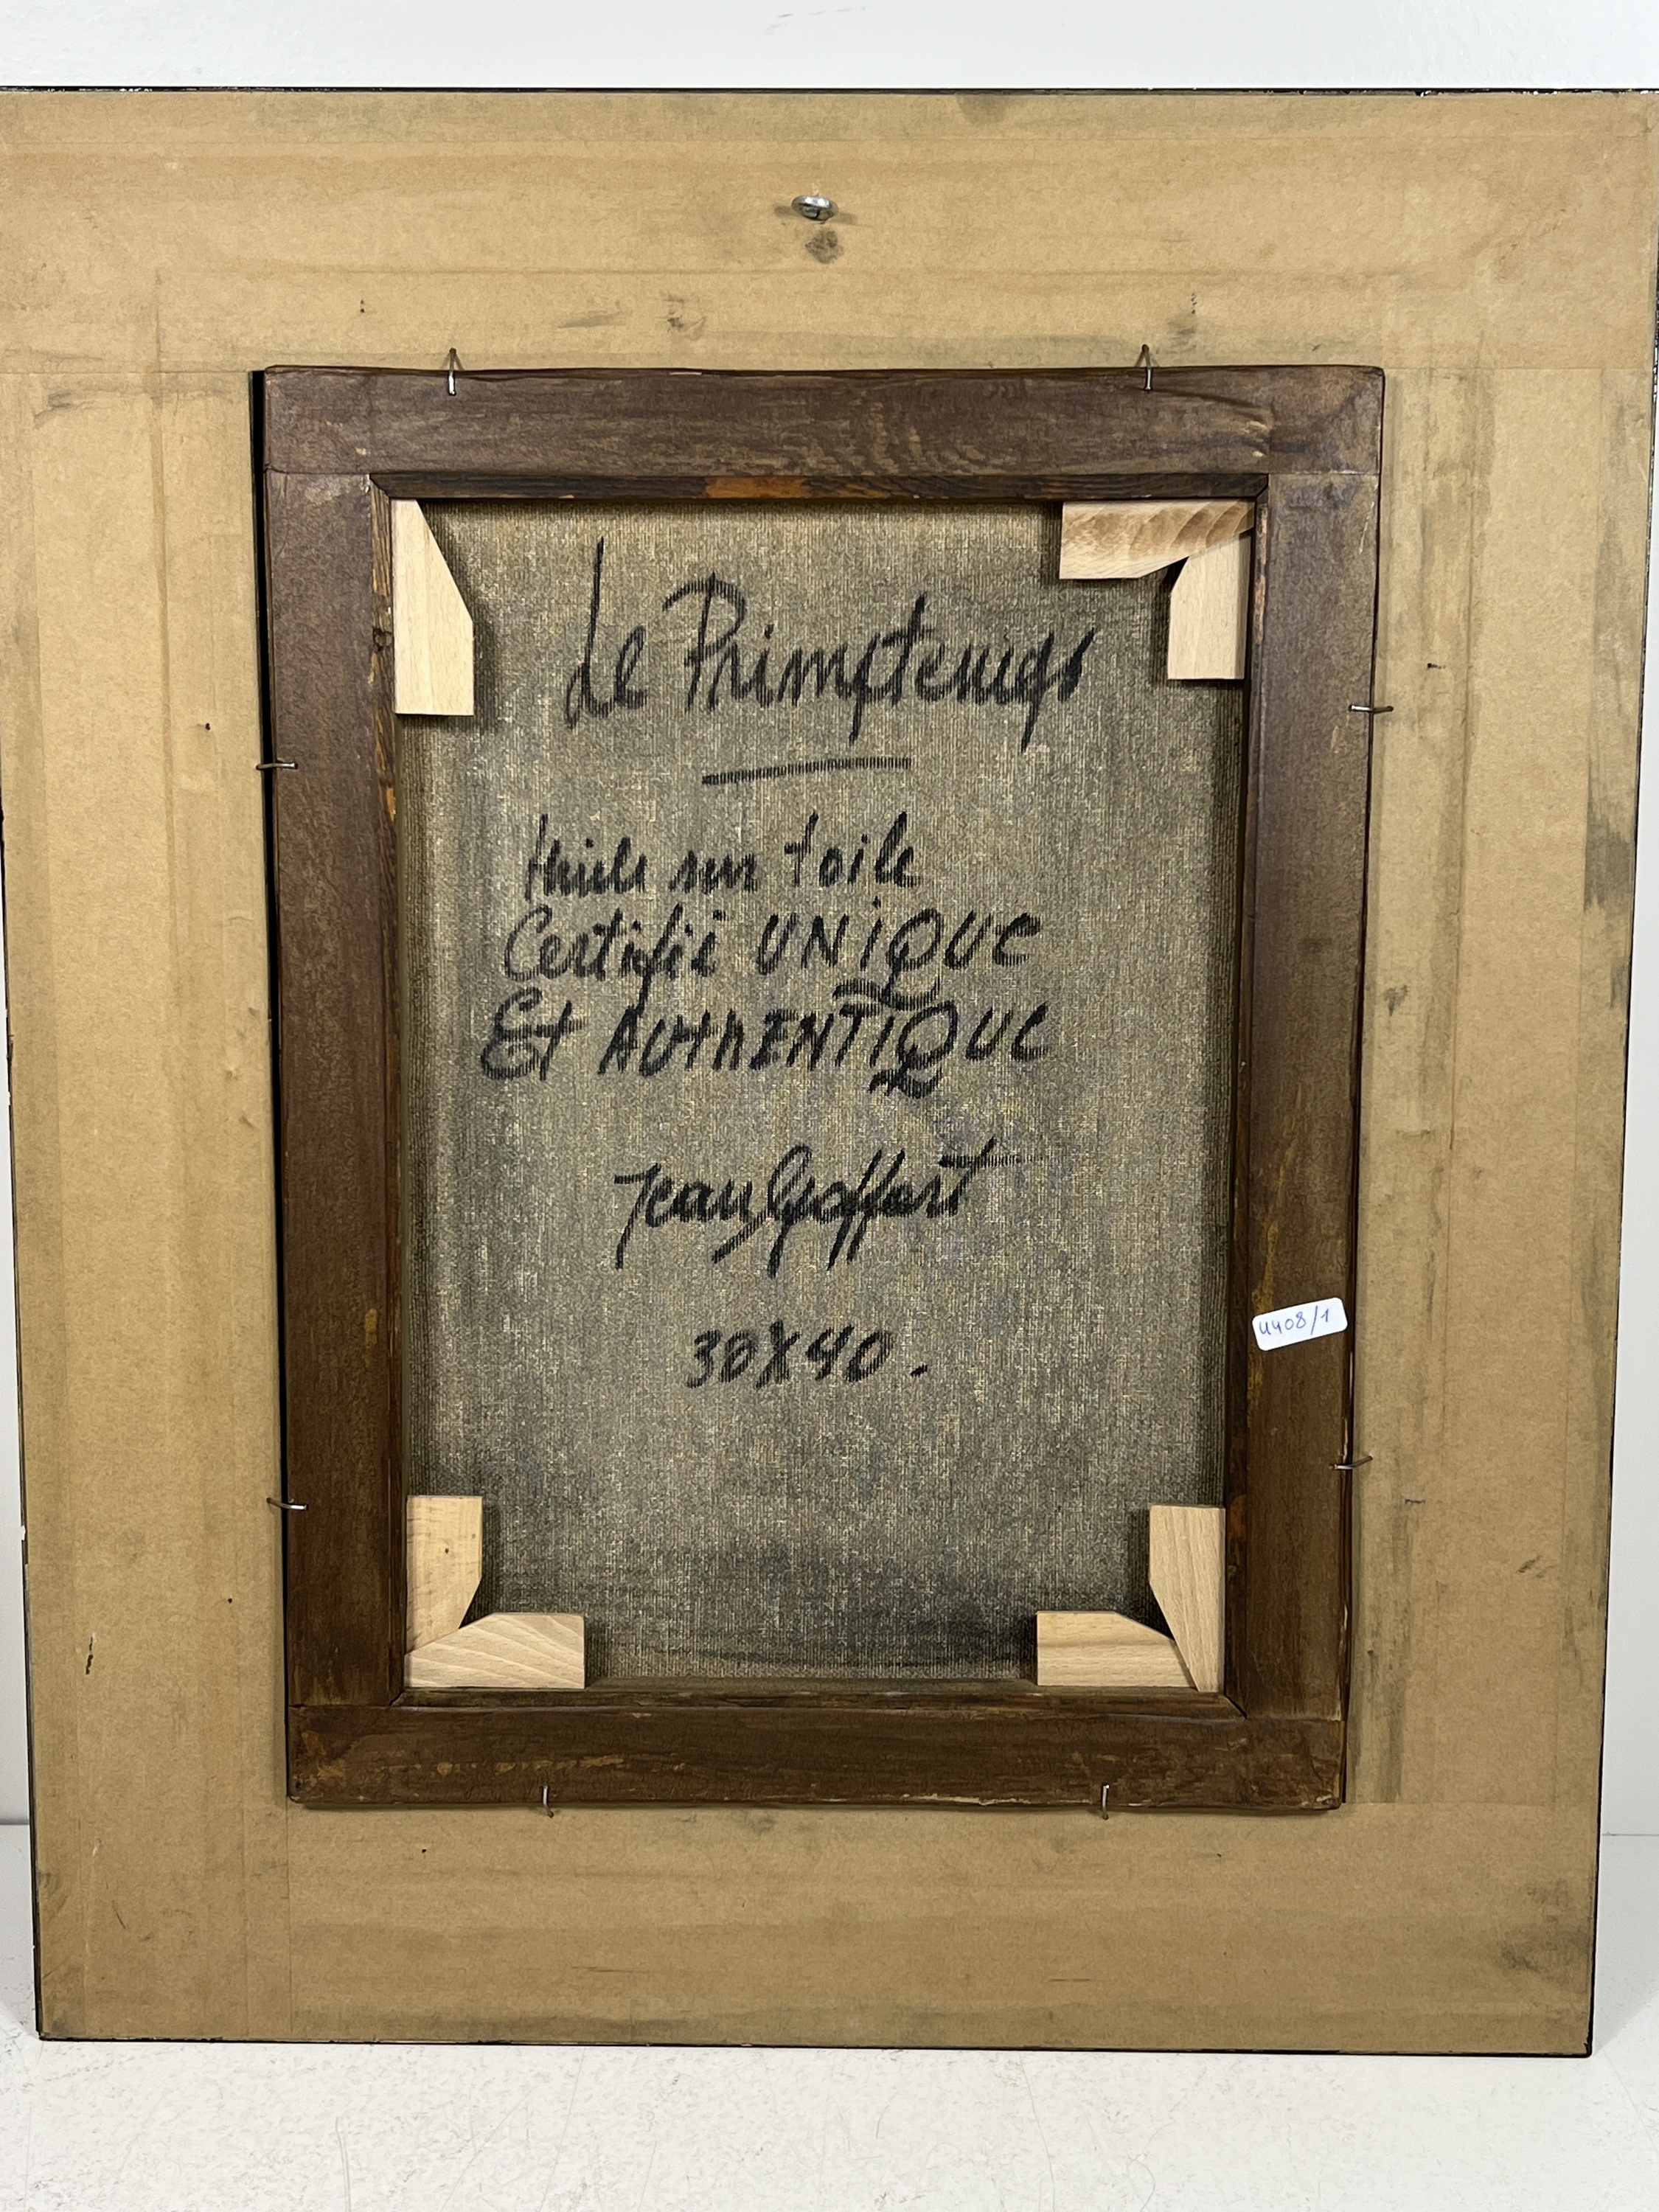 Le Primptemps
Huile sur toile
Certifié UNIQUE
Et AUTHENTIQUE
Jean Goffart
30X40.
4408/1